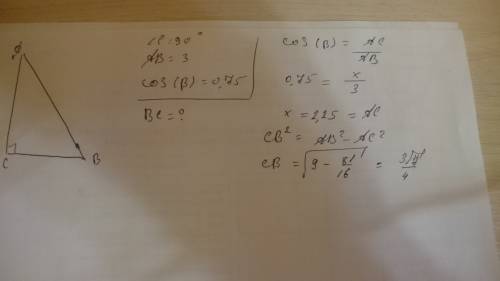 A
C
B
∠C=90°
AB = 3
cos(B) = 0,75
BC = ?
cos(B) = AC/AB
0,75 = x/3
x = 2,25 = AC
CB² = AB² - AC²
CB = √(9 - 81/16) =